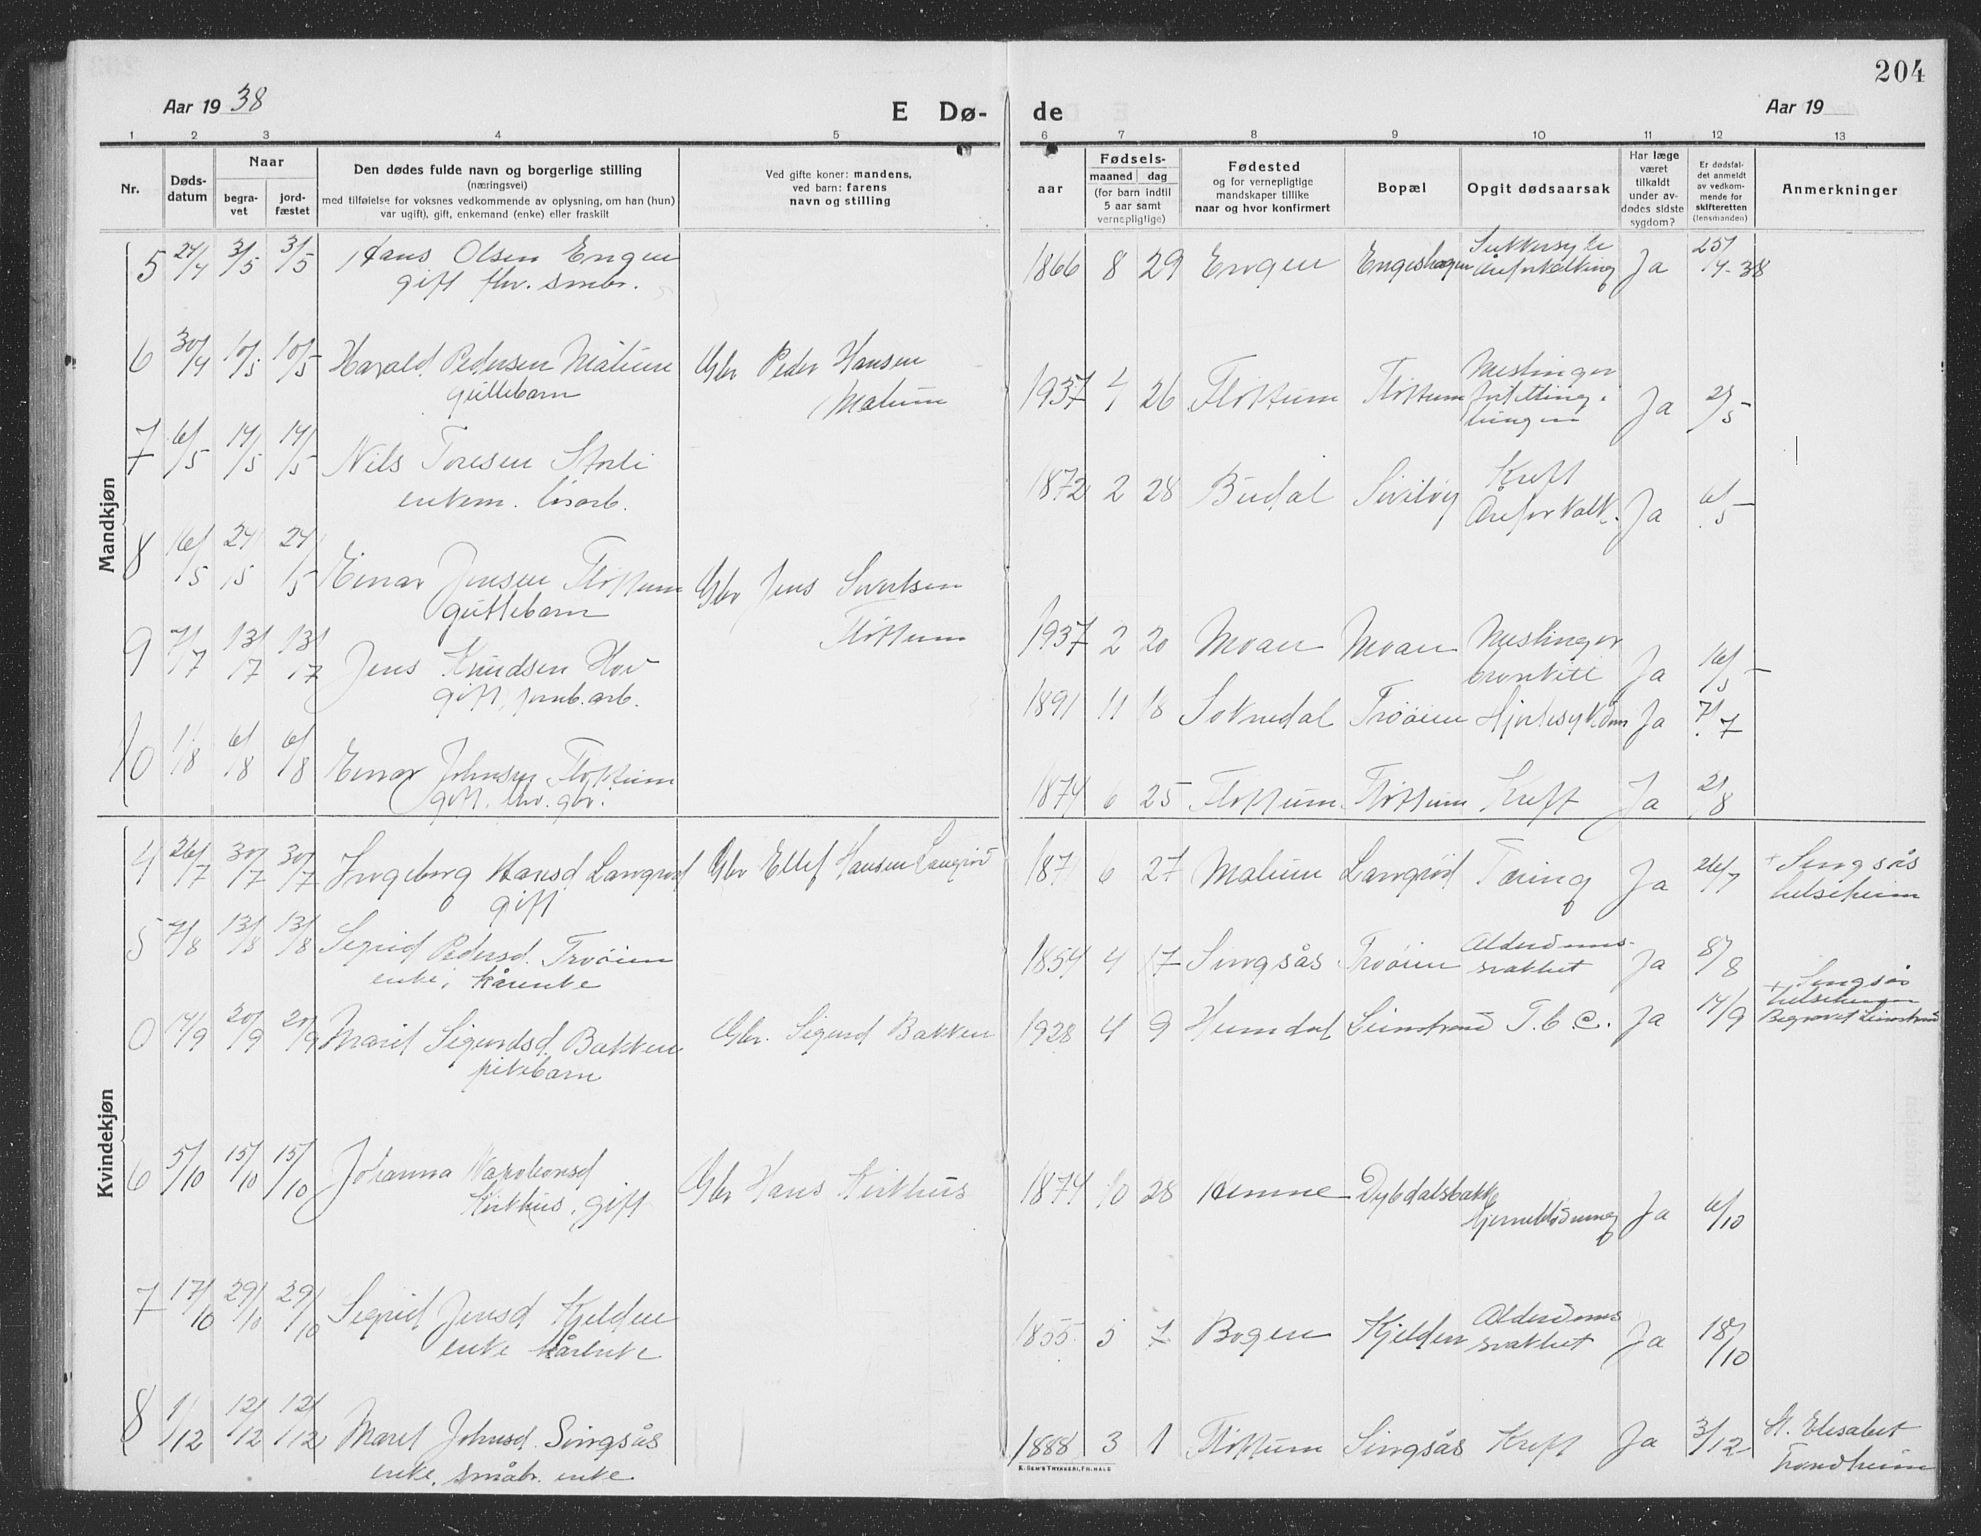 204
Aar 19 38
E Dø-
de
Aar 19
1 2 3 4 5 6 7 8 9 10 11 12 13
Nr.
Døds-
datum
Naar
begra-
vet
jord-
fæstet
Den dødes fulde navn og borgerlige stilling
(næringsvei)
med tilføielse for voksnes vedkommende av oplysning, om han (hun)
var ugift), gift, enkemand (enke) eller fraskilt
Ved gifte koner: mandens,
ved barn: farens
navn og stilling
Fødsels-
aar
maaned dag
(for barn indtil
5 aar samt
vernepligtige)
Fødested
og for vernepligtige
mandskaper tillike
naar og hvor konfirmert
Bopæl
Opgit dødsaarsak
Har læge
været
tilkaldt
under av-
dødes sidste
sygdom?
Er dødsfal-
det anmeldt
av vedkom-
mende for
skifteretten
(lensmanden)
Anmerkninger
Mandkjøn
5 3/5 3/5 Hans Olsen Engen 1866 8 29 Engen Engeshagen Sukkersyke Åreforkalkning Ja
gift fhv. smbr.
6 30/4 10/5 10/5 Harald Pedersen Malum Gbr Peder Hansen 1937 26 Flottum Flottum Meslinger Ja 2/5
guttebarn Malum
7 6/5 14/5 14/5 Nils Toresen Storli 1872 2 28 Budal Kreft Ja 6/5
enkem. løsarb. Åreforkalk.
8 16/5 24/5 24/5 Einar Jensen Flottum Gbr Jens Sivertsen 1937 2 20 Moan Moan Meslinger Ja 16/5
guttebarn Flottum bronkitt
9 7/7 13/7 13/7 Jens Knudsen Hov 1891 11 18 Soknedal Trøøien Hjertesykdom Ja 7/7
gift, jernb.arb.
10 1/8 6/8 6/8 Einar Johnsen Flottum 1874 6 25 Flottum Flottum Kreft Ja 2/8
gift. fhv. gbr.
Kvindekjøn
4 26/7 30/7 30/7 Ingeborg Hansd Langrød Gbr Ellef Hansen Langrød 187 6 27 Malum Langrød Tæring Ja 26/7 + Singsås
gift helseheim
5 7/8 13/8 13/8 Sigrid Pedersd. Trøøien 1854 4 17 Singsås Trøøien Alderdoms- Ja 8/8
enke, kårenke svakhet
0 14/9 20/9 20/9 Marit Sigurdsd. Bakken Gbr. Sigurd Bakken 1928 4 9 Heimdal Leinstrand T.b.c. Ja 14/9 + Singsås
pikebarn helseheim
Begravet Leinstrand
6 5/10 15/10 15/10 Johanna Gbr Hans Kirkhus 1874 10 28 Hemne Dybdalsbakk Hjerneblødning Ja 6/10
Kirkhus, gift
7 17/10 29/10 29/10 Sigrid Jensd Kjelden 1855 5 7 Bogen Kjelden Alderdoms Ja 18/10
enke kårenke svakhet
8 1/12 12/12 12/12 Marit Johnsd. Singsås 1888 3 1 Flottum Singsås Kreft Ja 3/12 St. Elisabet
enke, småbr. enke Trondheim
E. SEM'S TRYKKERI, FR. HALD